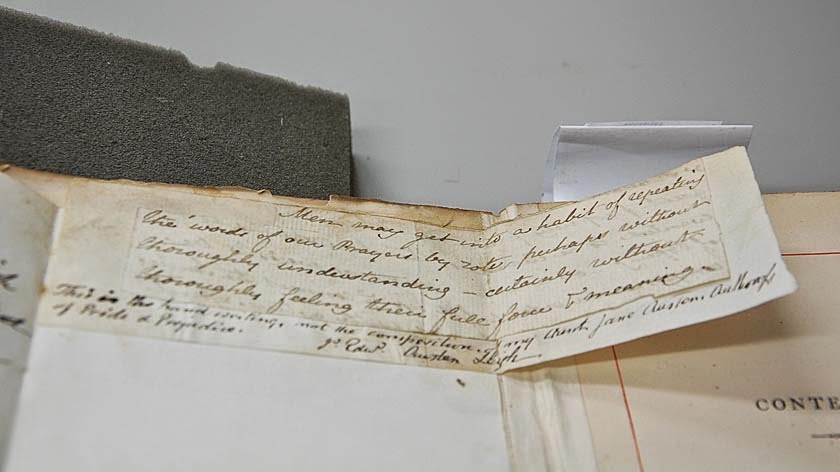 Men may get into a habit of repeating
the words of our Prayers by rote, perhaps without
thoroughly understanding – certainly without
thoroughly feeling their full force & meaning.
This is the hand writing, not the composition, my Aunt, Jane Austen, Author
of Pride & Prejudice.
Js Edwd. Austen Leigh
CONTE